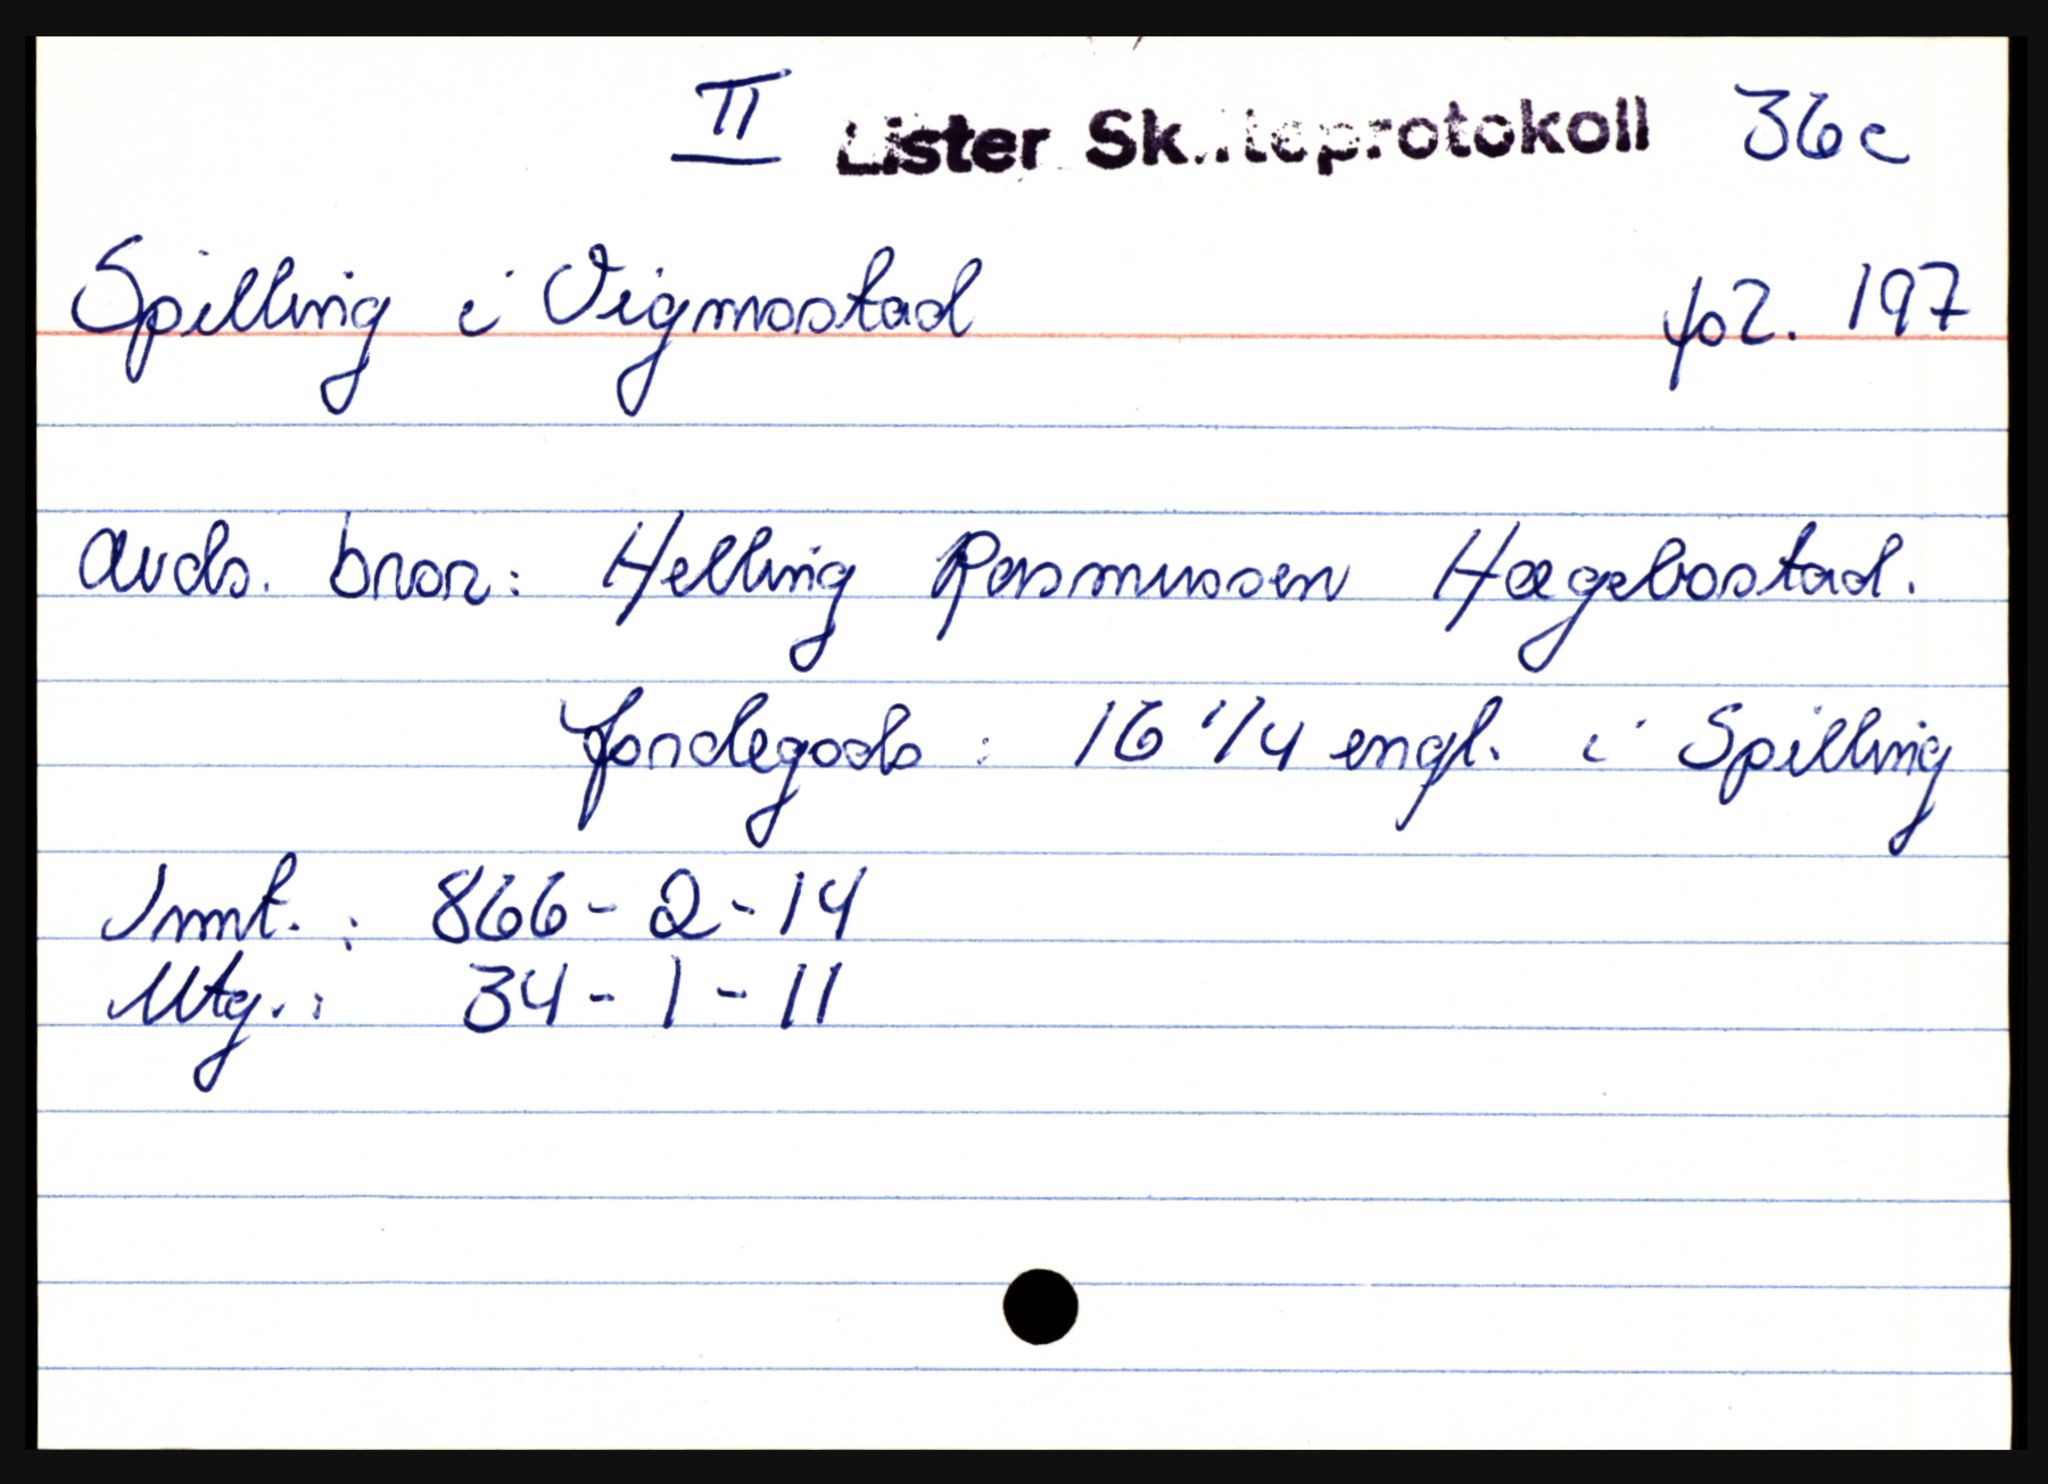 II Lister Skifteprotokoll 36c
Spilling i Vigmostad fol. 197
avds. bror: Helling Rasmussen Hægebostad.
Jordegods: 16 1/4 engl. i Spilling
Innt.: 866-2-14
Utg.: 34-1-11